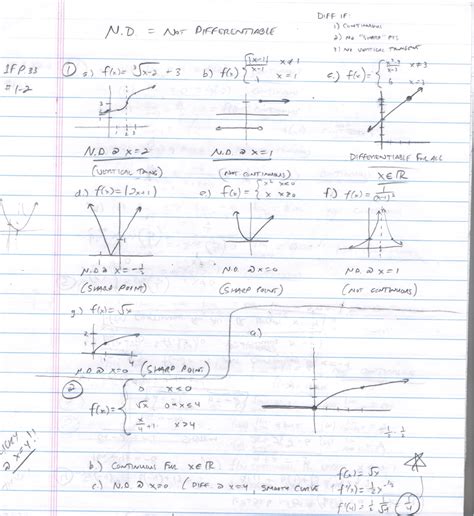 N.D = NOT DIFFERENTIABLE
DIFF IF
1) CONTINUOUS
2) NO "SHARP" PTS
3) NO VERTICAL TANGENT
IF P 33
# 1-2
① a) f(x) = ∛x-2 + 3
b) f(x) { |x-1|/x-1 x≠1
x=1
c) f(x) =
x=3
N.D. @ x = 2
(VERTICAL TANG)
N.D. @ x = 1
(NOT CONTINUOUS)
DIFFERENTIABLE FOR ALL
X∈ℝ
d) f(x) = |2x+1|
e) f(x) = { x² x<0
x x≥0
f.) f(x) = 1/(x-1)²
N.D @ x = -½
(SHARP POINT)
N.D. @ x=0
(SHARP POINT)
N.D. @ x = 1
(NOT CONTINUOUS)
g) f(x) = √x
N.D @ x=0 (SHARP POINT)
② f(x) = { 0 x<0
√x 0<x≤4
x/4 +1 x>4
a)
@ x=4!!
b.) CONTINUOUS FOR X∈ℝ
c.) N.D @ x=0 (DIFF. @ x=4, SMOOTH CURVE
f(x) = √x
f'(x) = ½x^-½
f'(4) = ½ 1/√4 = 1/4